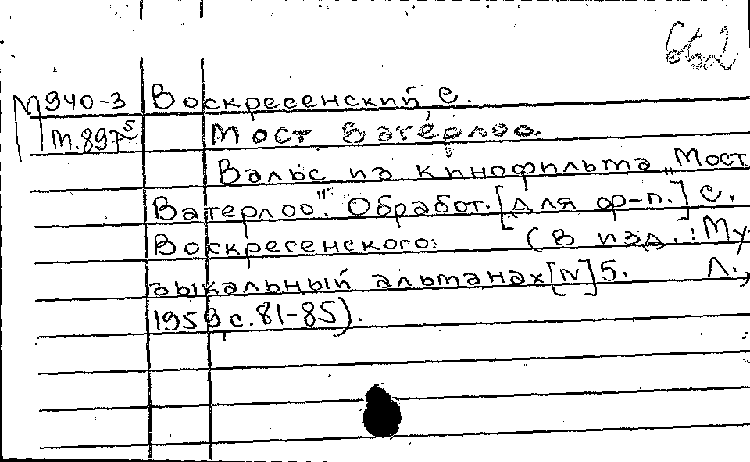 М940-3 Воскресенский, С.
Мост Ватерлоо.
Вальс из кинофильма „Мост
Ватерлоо". Обработ. [для ф-п.] С.
Воскресенского. (В изд.: Му
зыкальный альманах [N] 5. Л.,
1959, с. 81-85).